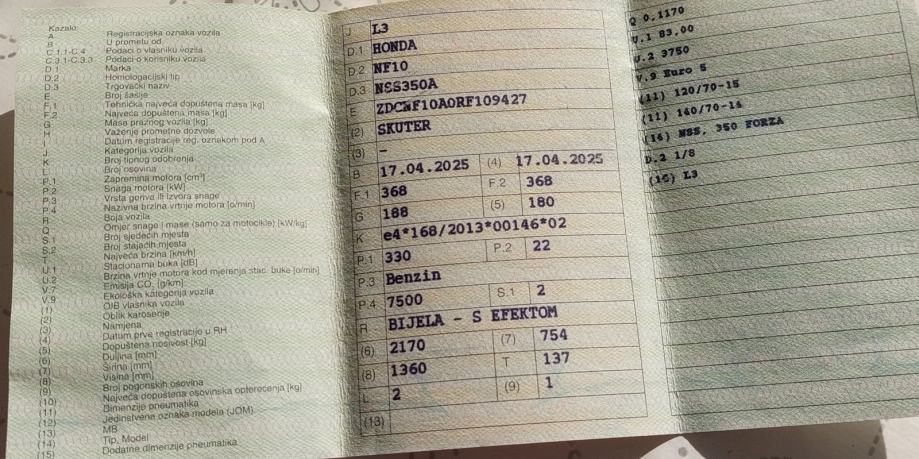 Kazalo:
A Registracijska oznaka vozila
B U prometu od
C.1.1-C.4 Podaci o vlasniku vozila
C.3.1-C.3.3 Podaci o korisniku vozila
D.1 Marka
D.2 Homologacijski tip
D.3 Trgovački naziv
E Broj šasije
F.1 Tehnička najveća dopuštena masa [kg]
F.2 Najveća dopuštena masa [kg]
G Masa praznog vozila [kg]
H Važenje prometne dozvole
I Datum registracije reg. oznakom pod A
J Kategorija vozila
K Broj tipnog odobrenja
L Broj osovina
P.1 Zapremina motora [cm³]
P.2 Snaga motora [kW]
P.3 Vrsta goriva ili izvora snage
P.4 Nazivna brzina vrtnje motora [o/min]
R Boja vozila
Q Omjer snage i mase (samo za motocikle) [kW/kg]
S.1 Broj sjedećih mjesta
S.2 Broj stajaćih mjesta
T Najveća brzina [km/h]
U.1 Stacionarna buka [dB]
U.2 Brzina vrtnje motora kod mjerenja stac. buke [o/min]
V.7 Emisija CO₂ [g/km]
V.9 Ekološka kategorija vozila
(1) OIB vlasnika vozila
(2) Oblik karoserije
(3) Namjena
(4) Datum prve registracije u RH
(5) Dopuštena nosivost [kg]
(6) Duljina [mm]
(7) Širina [mm]
(8) Visina [mm]
(9) Broj pogonskih osovina
(10) Najveća dopuštena osovinska opterećenja [kg]
(11) Dimenzije pneumatika
(12) Jedinstvena oznaka modela (JOM)
(13) MB
(14) Tip, Model
(15) Dodatne dimenzije pneumatika
J L3
D.1 HONDA
D.2 NF10
D.3 NSS350A
E ZDCNF10A0RF109427
(2) SKUTER
(3) –
B 17.04.2025 (4) 17.04.2025
F.1 368 F.2 368
G 188 (5) 180
K e4*168/2013*00146*02
P.1 330 P.2 22
P.3 Benzin
P.4 7500 S.1 2
R BIJELA - S EFEKTOM
(6) 2170 (7) 754
(8) 1360 T 137
L 2 (9) 1
(13)
Q 0.1170
U.1 83,00
U.2 3750
V.9 Euro 5
(11) 120/70-15
(11) 140/70-14
(14) NSS, 350 FORZA
D.2 1/8
(16) L3